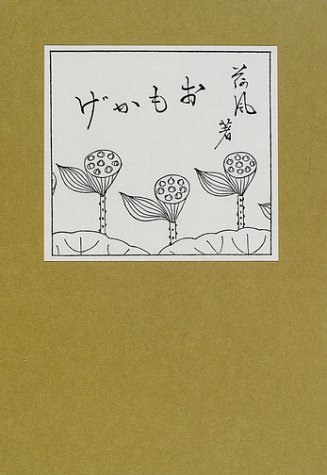 荷風著
おもかげ